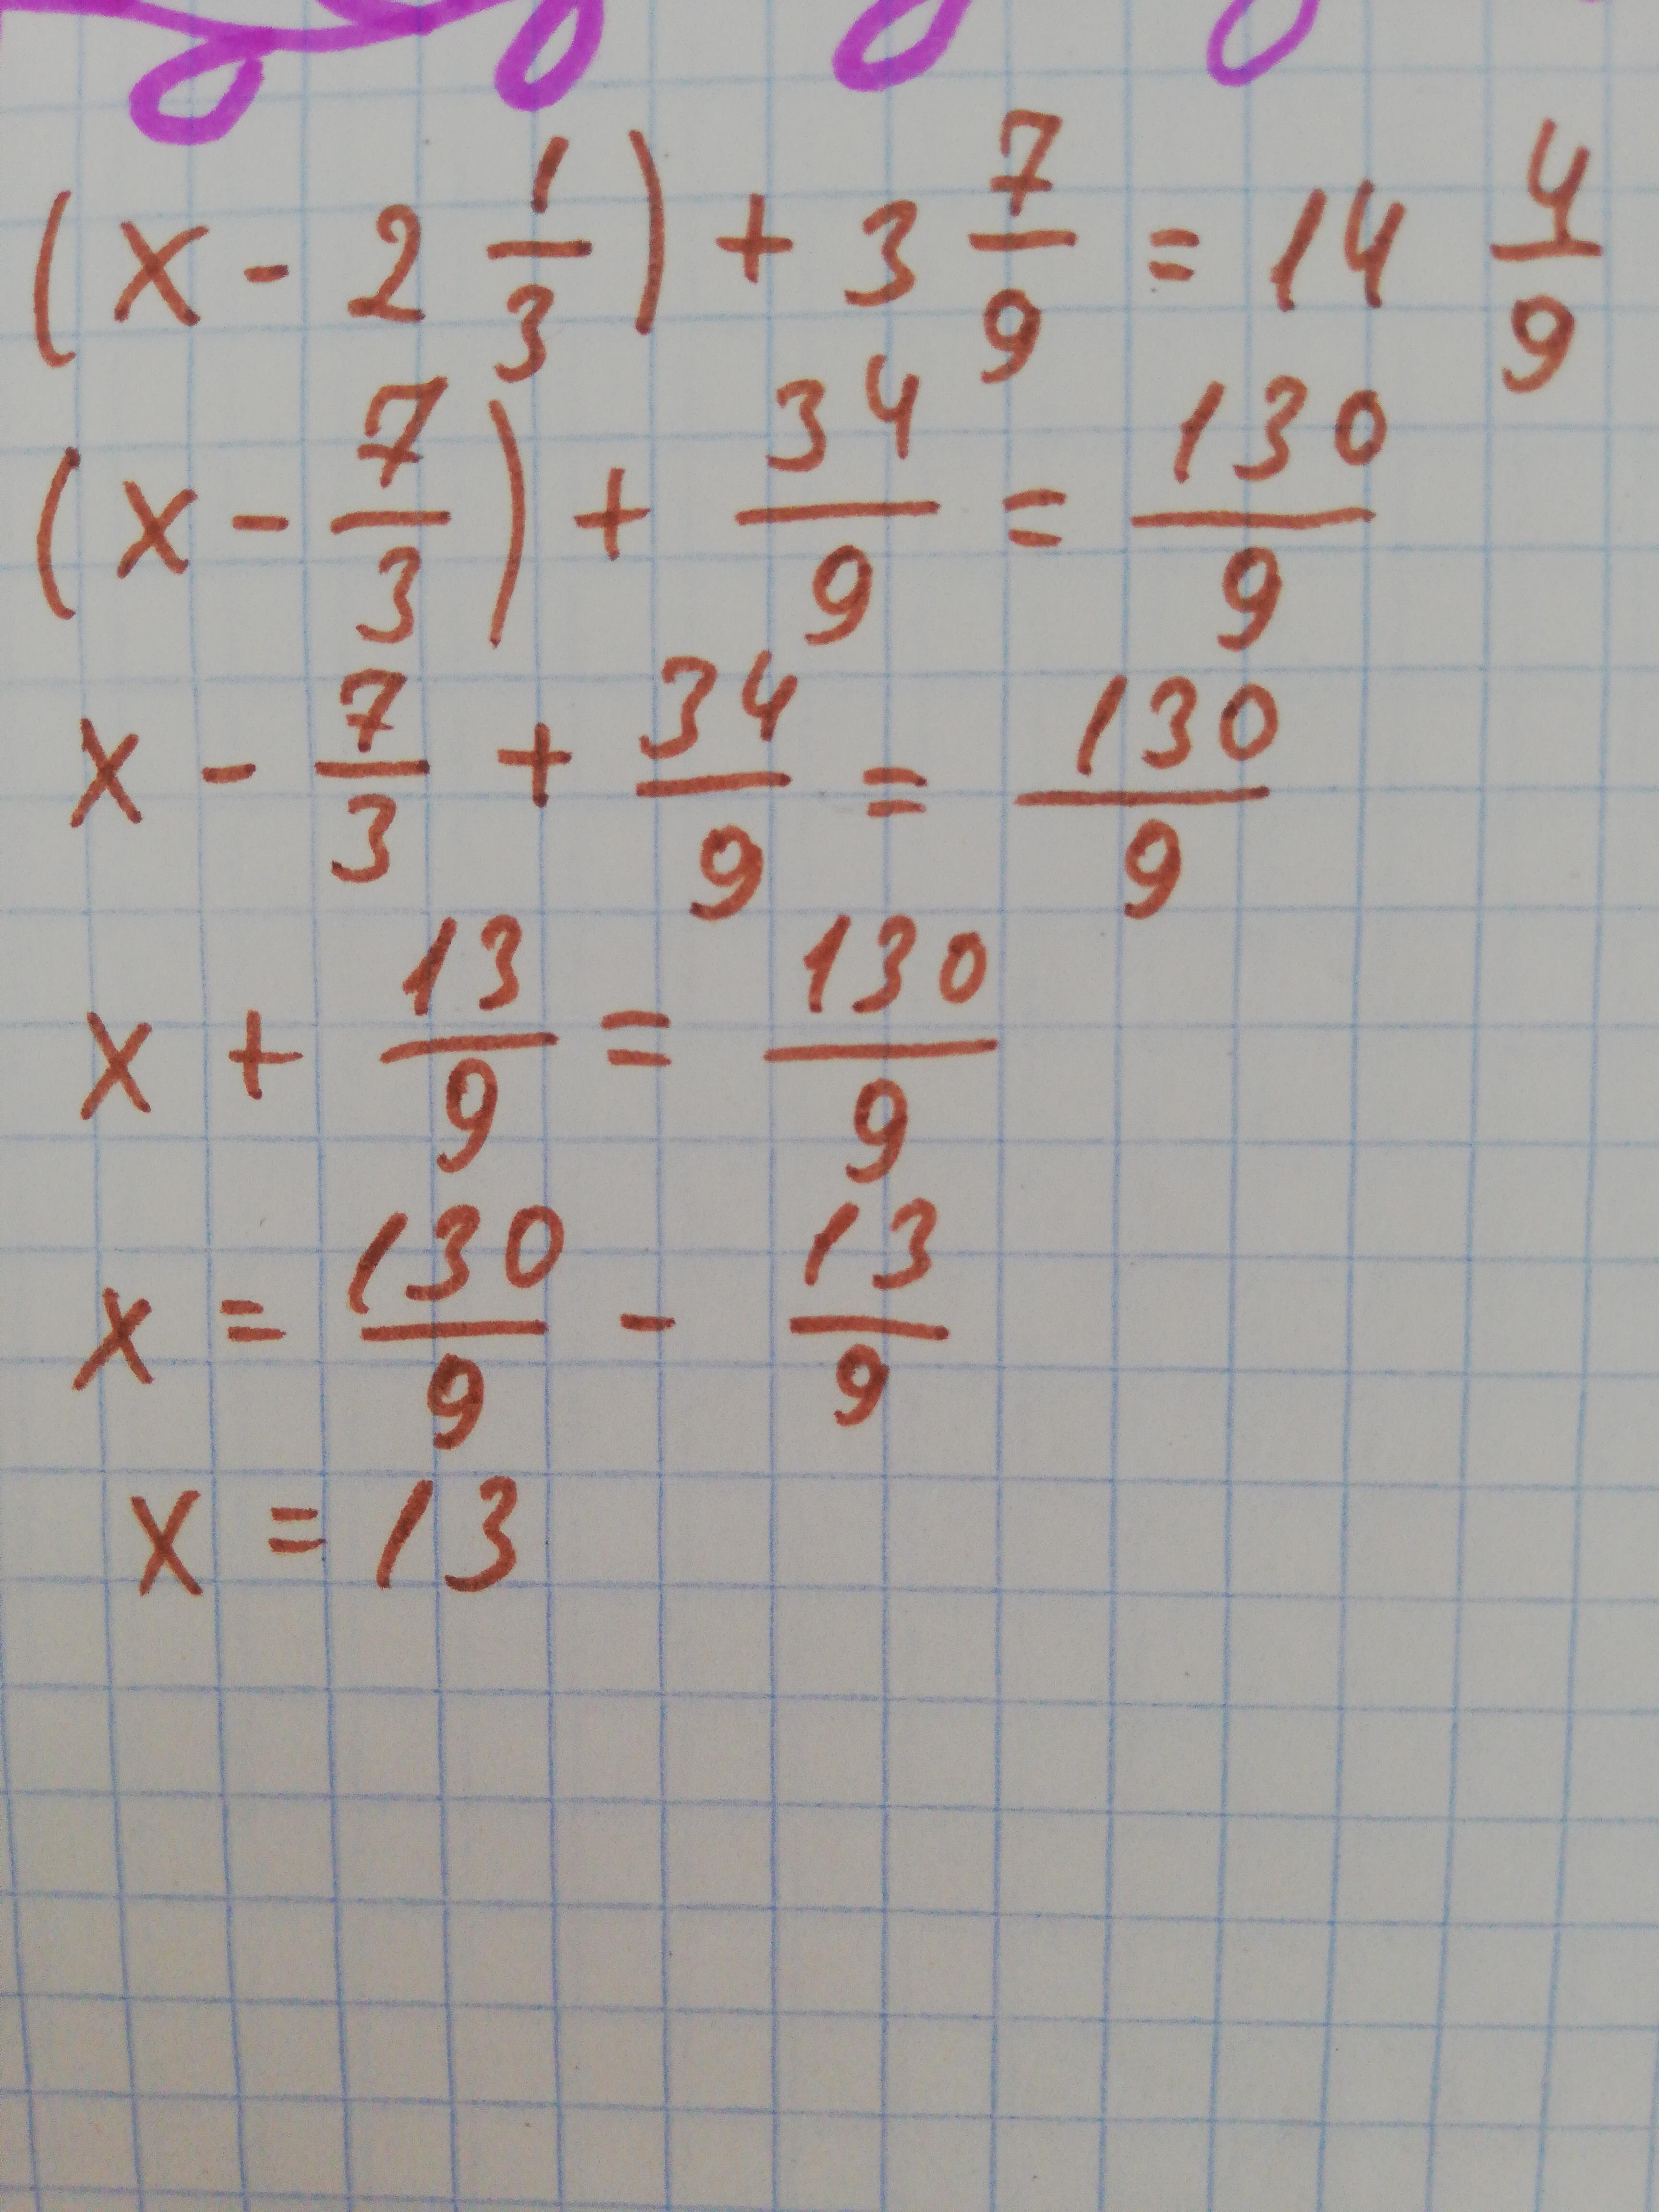 (x - 2 1/3) + 3 7/9 = 14 4/9
(x - 7/3) + 34/9 = 130/9
x - 7/3 + 34/9 = 130/9
x + 13/9 = 130/9
x = 130/9 - 13/9
x = 13